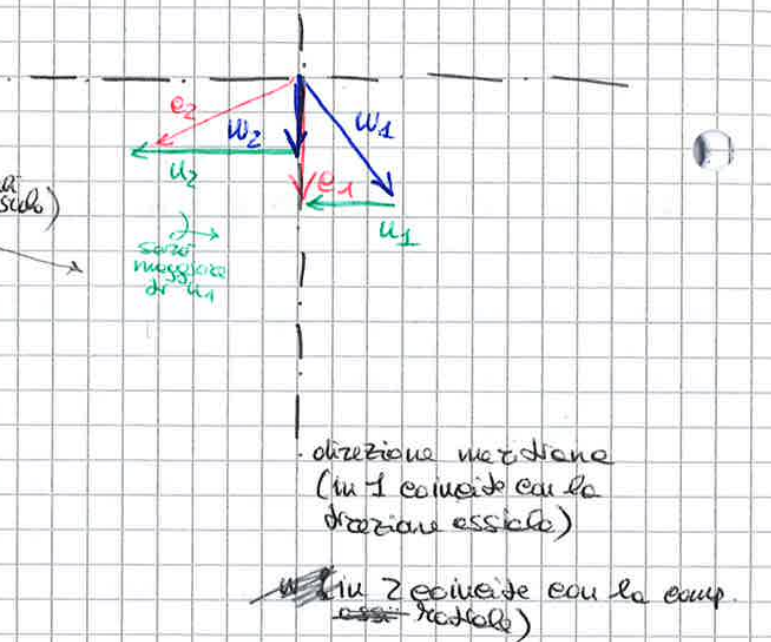 c2
w2
w1
u2
c1
u1
sarà
maggiore
di u1
direzione meridiana
(in 1 coincide con la
direzione assiale)
(in 2 coincide con la comp.
radiale)